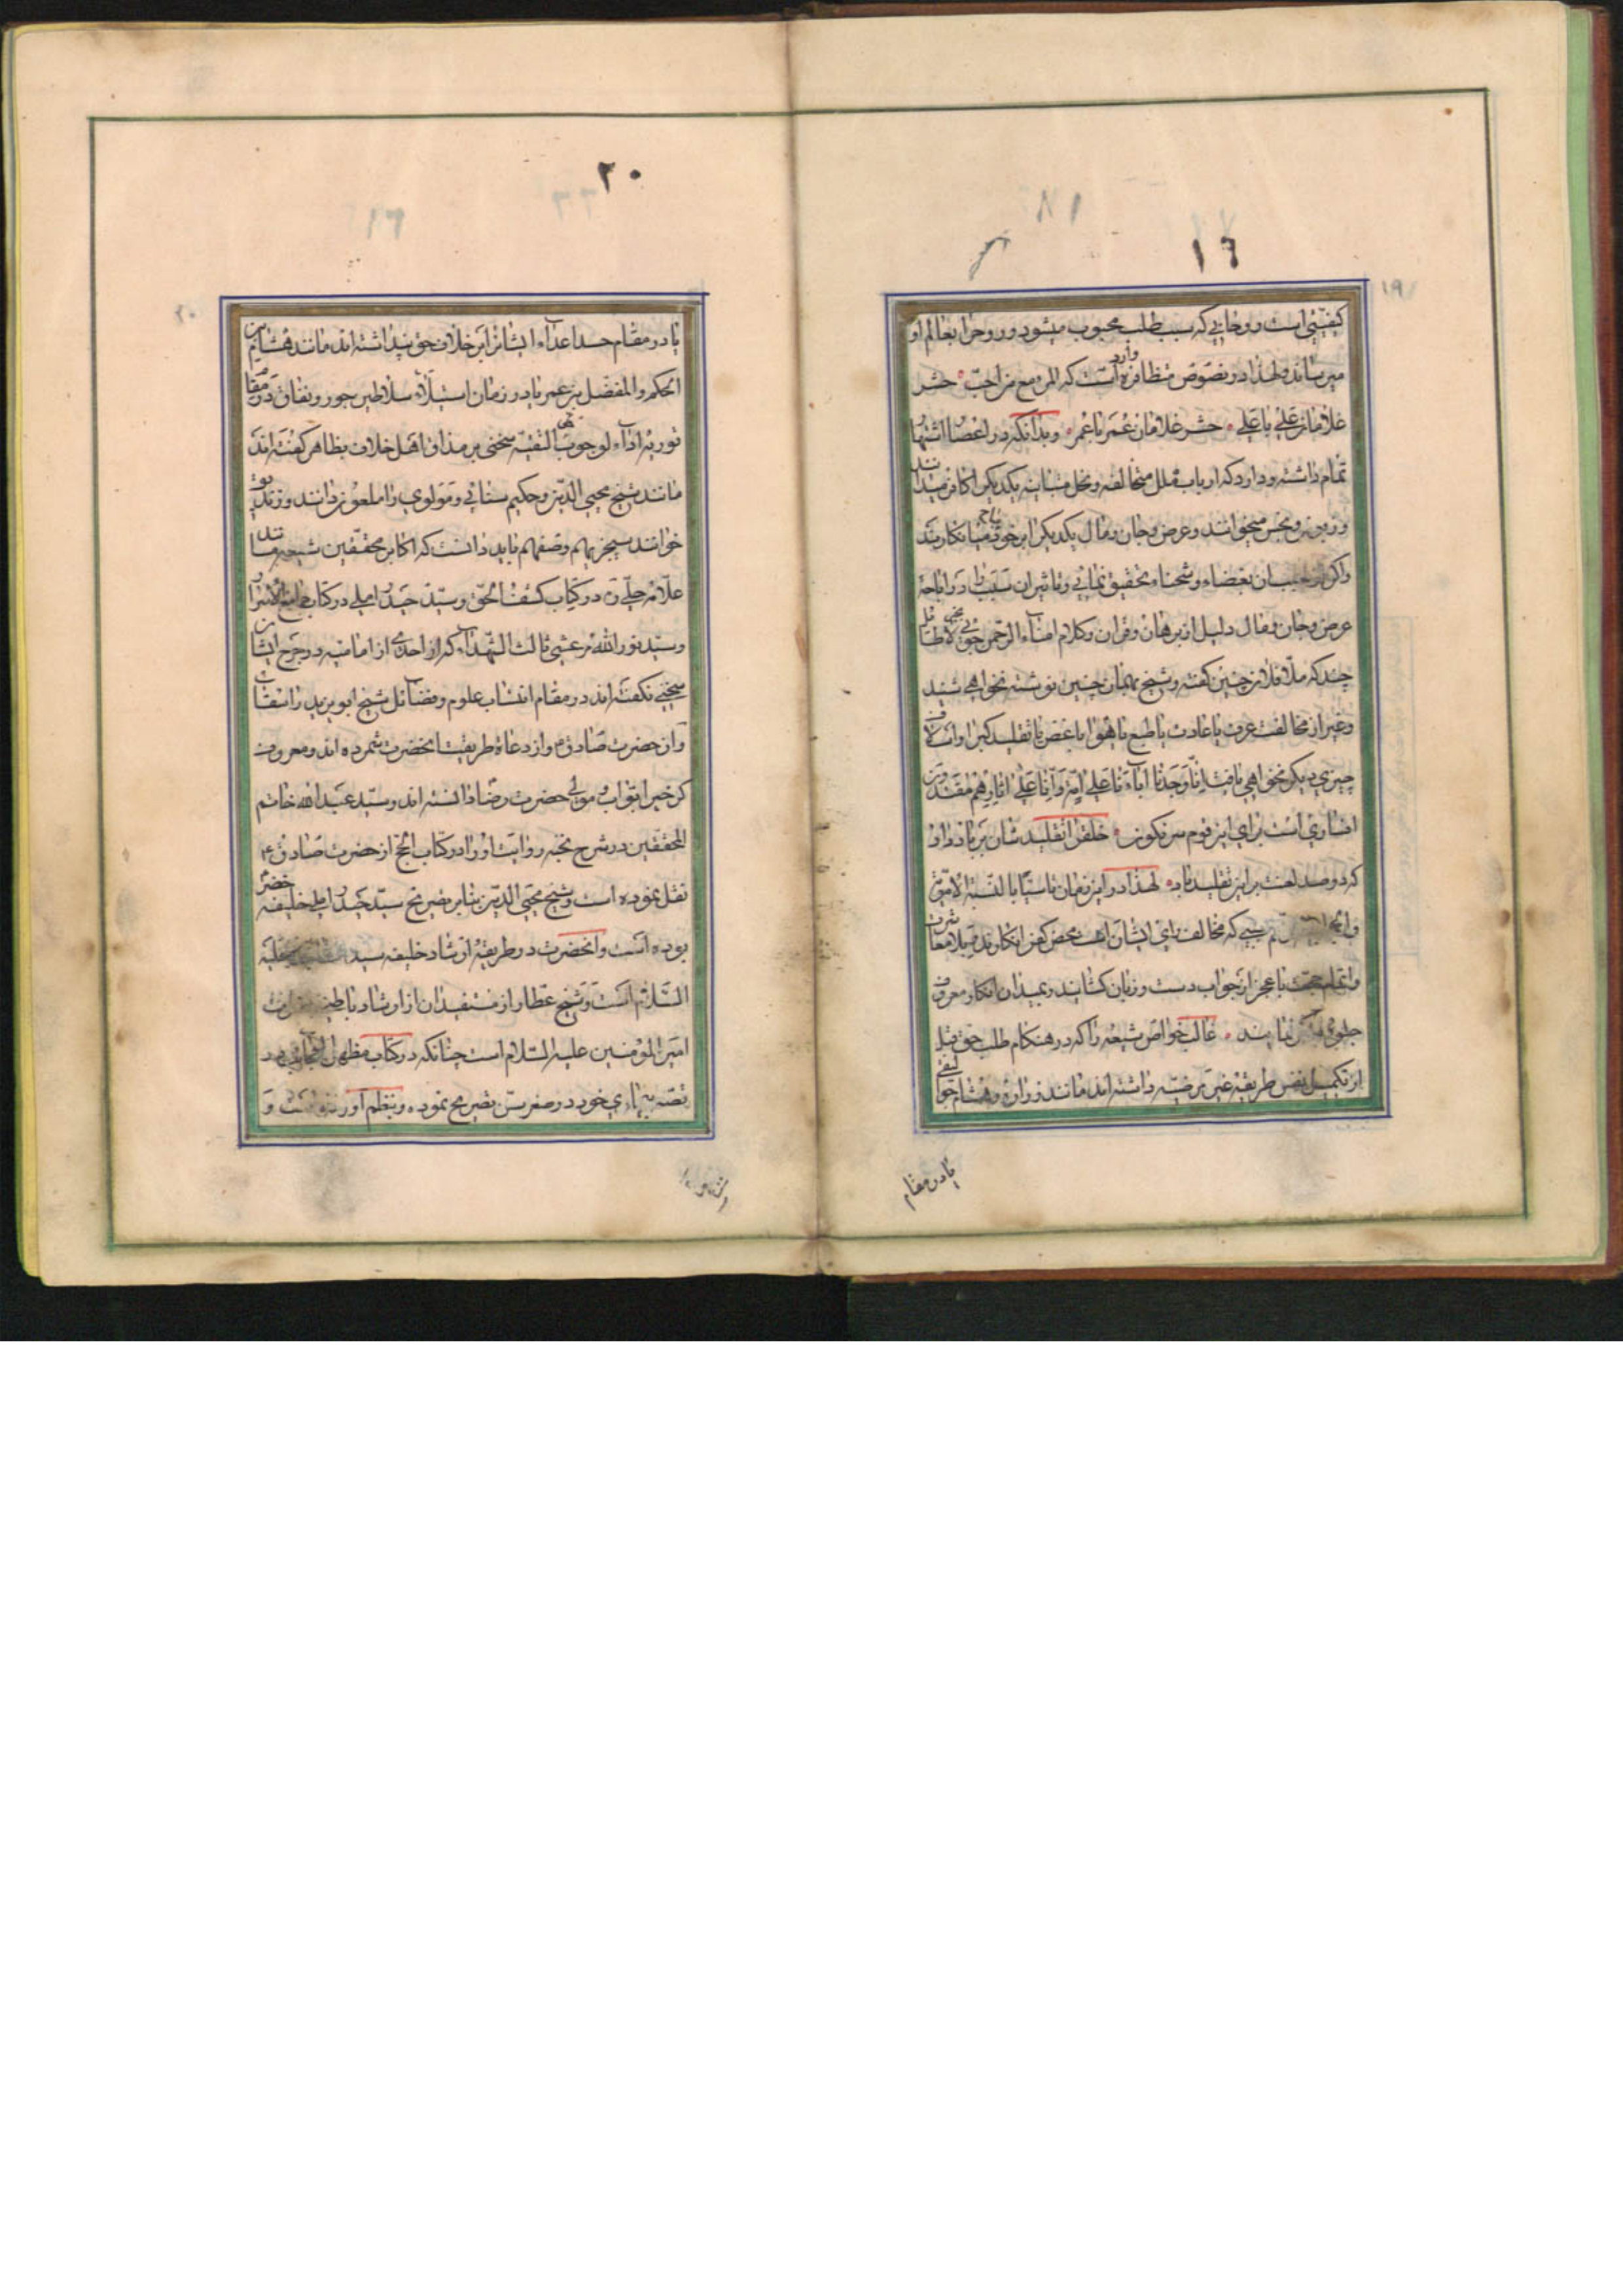 ١٦
کیفیتی است روحانی که سبب طلب محبوب میشود و روح را بعالم او
میرساند و لهذا در نصوص متظافره وارد است که المرء مع من احب حشر
غلامان علی با علی حشر غلامان عمر با عمر و بدانکه در اعصار اشتهار
تمام داشته و دارد که ارباب ملل متخالفه و نحل متباینه یکدیگر را کافر میدانند
و نجس میخوانند و عرض و جان و مال یکدیگر را بر خود مباح میانگارند
واگر بغضاء و شحناء تحقیق نمائی و تاثیر ان سبب را در اباحه
عرض و جان و مال دلیل از برهان و قران و کلام امناء الرحمن جوئی بجز لاطائلی
چند که ملا فلان چنین گفته و شیخ بهمان چنین نوشته نخواهی شنید
و غیر از مخالفت عرف یا عادت یا طبع یا هوا یا غض یا تقلید کبرا و اسلاف
چیزی دیگر نخواهی یافت انا وجدنا اباءنا علی امة و انا علی اثارهم مقتدون
افساری است برای این قوم سرنگون خلق را تقلیدشان بر باد داد
که دو صد لعنت بر این تقلید باد لهذا در این زمان ناسیما بالنسبة الامة
که مخالف رای ایشان است محض کفر انگارند قبلا معاشرت
و اتمام حجت با عجز از جواب دست و زبان کشایند و بمیدان انکار معروف
نمایند غالب خواص شیعه را که در هنگام طلب حق قبل
از تکمیل نفس طریقه غیر مرضیه داشته اند مانند زراره و هشام جوالیقی
یا در مقام
٢٠
یا در مقام حسد اعداء ایشان را بر خلاف حق پنداشته اند مانند هشام بن
الحکم و المفضل بن عمر یا در زمان استیلاء سلاطین جور و نفاق در مقام
توریه اداء لوجوب التقیه سخنی بر مذاق اهل خلاف بظاهر گفته اند
مانند شیخ محیی الدین و حکیم سنائی و مولوی را ملعون دانند و زندیق
خوانند سیجزیهم وصفهم باید دانست که اکابر محققین شیعه مانند
علامه حلی ره در کتاب کشف الحق و سید حیدر املی در کتاب جامع الاسرار
و سید نور الله مرعشی ثالث الشهداء که از احدی از امامیه در جرح ایشان
سخنی نگفته اند در مقام انتساب علوم و فضائل شیخ ابو یزید را سقاب
وان حضرت صادق و از دعاة طریقت انحضرت شمرده اند و معروف
کرخی را بواب و موالی حضرت رضا دانسته اند و سید عبد الله خاتم
المحققین در شرح نخبه روایت او را در کتاب الحج از حضرت صادق ع
نقل نموده است و شیخ محیی الدین بنا بر تصریح سید حیدر املی خلیفه خضر
بوده است و انحضرت در طریقه ارشاد خلیفه سید
السلام است و شیخ عطار از مستفیدان از ارشاد باطنی حضرت
امیر المؤمنین علیه السلام است چنانکه در کتاب مظهر العجایب در
قصه بیماری خود در صغر سن تصریح نموده و بنظم آورده است و